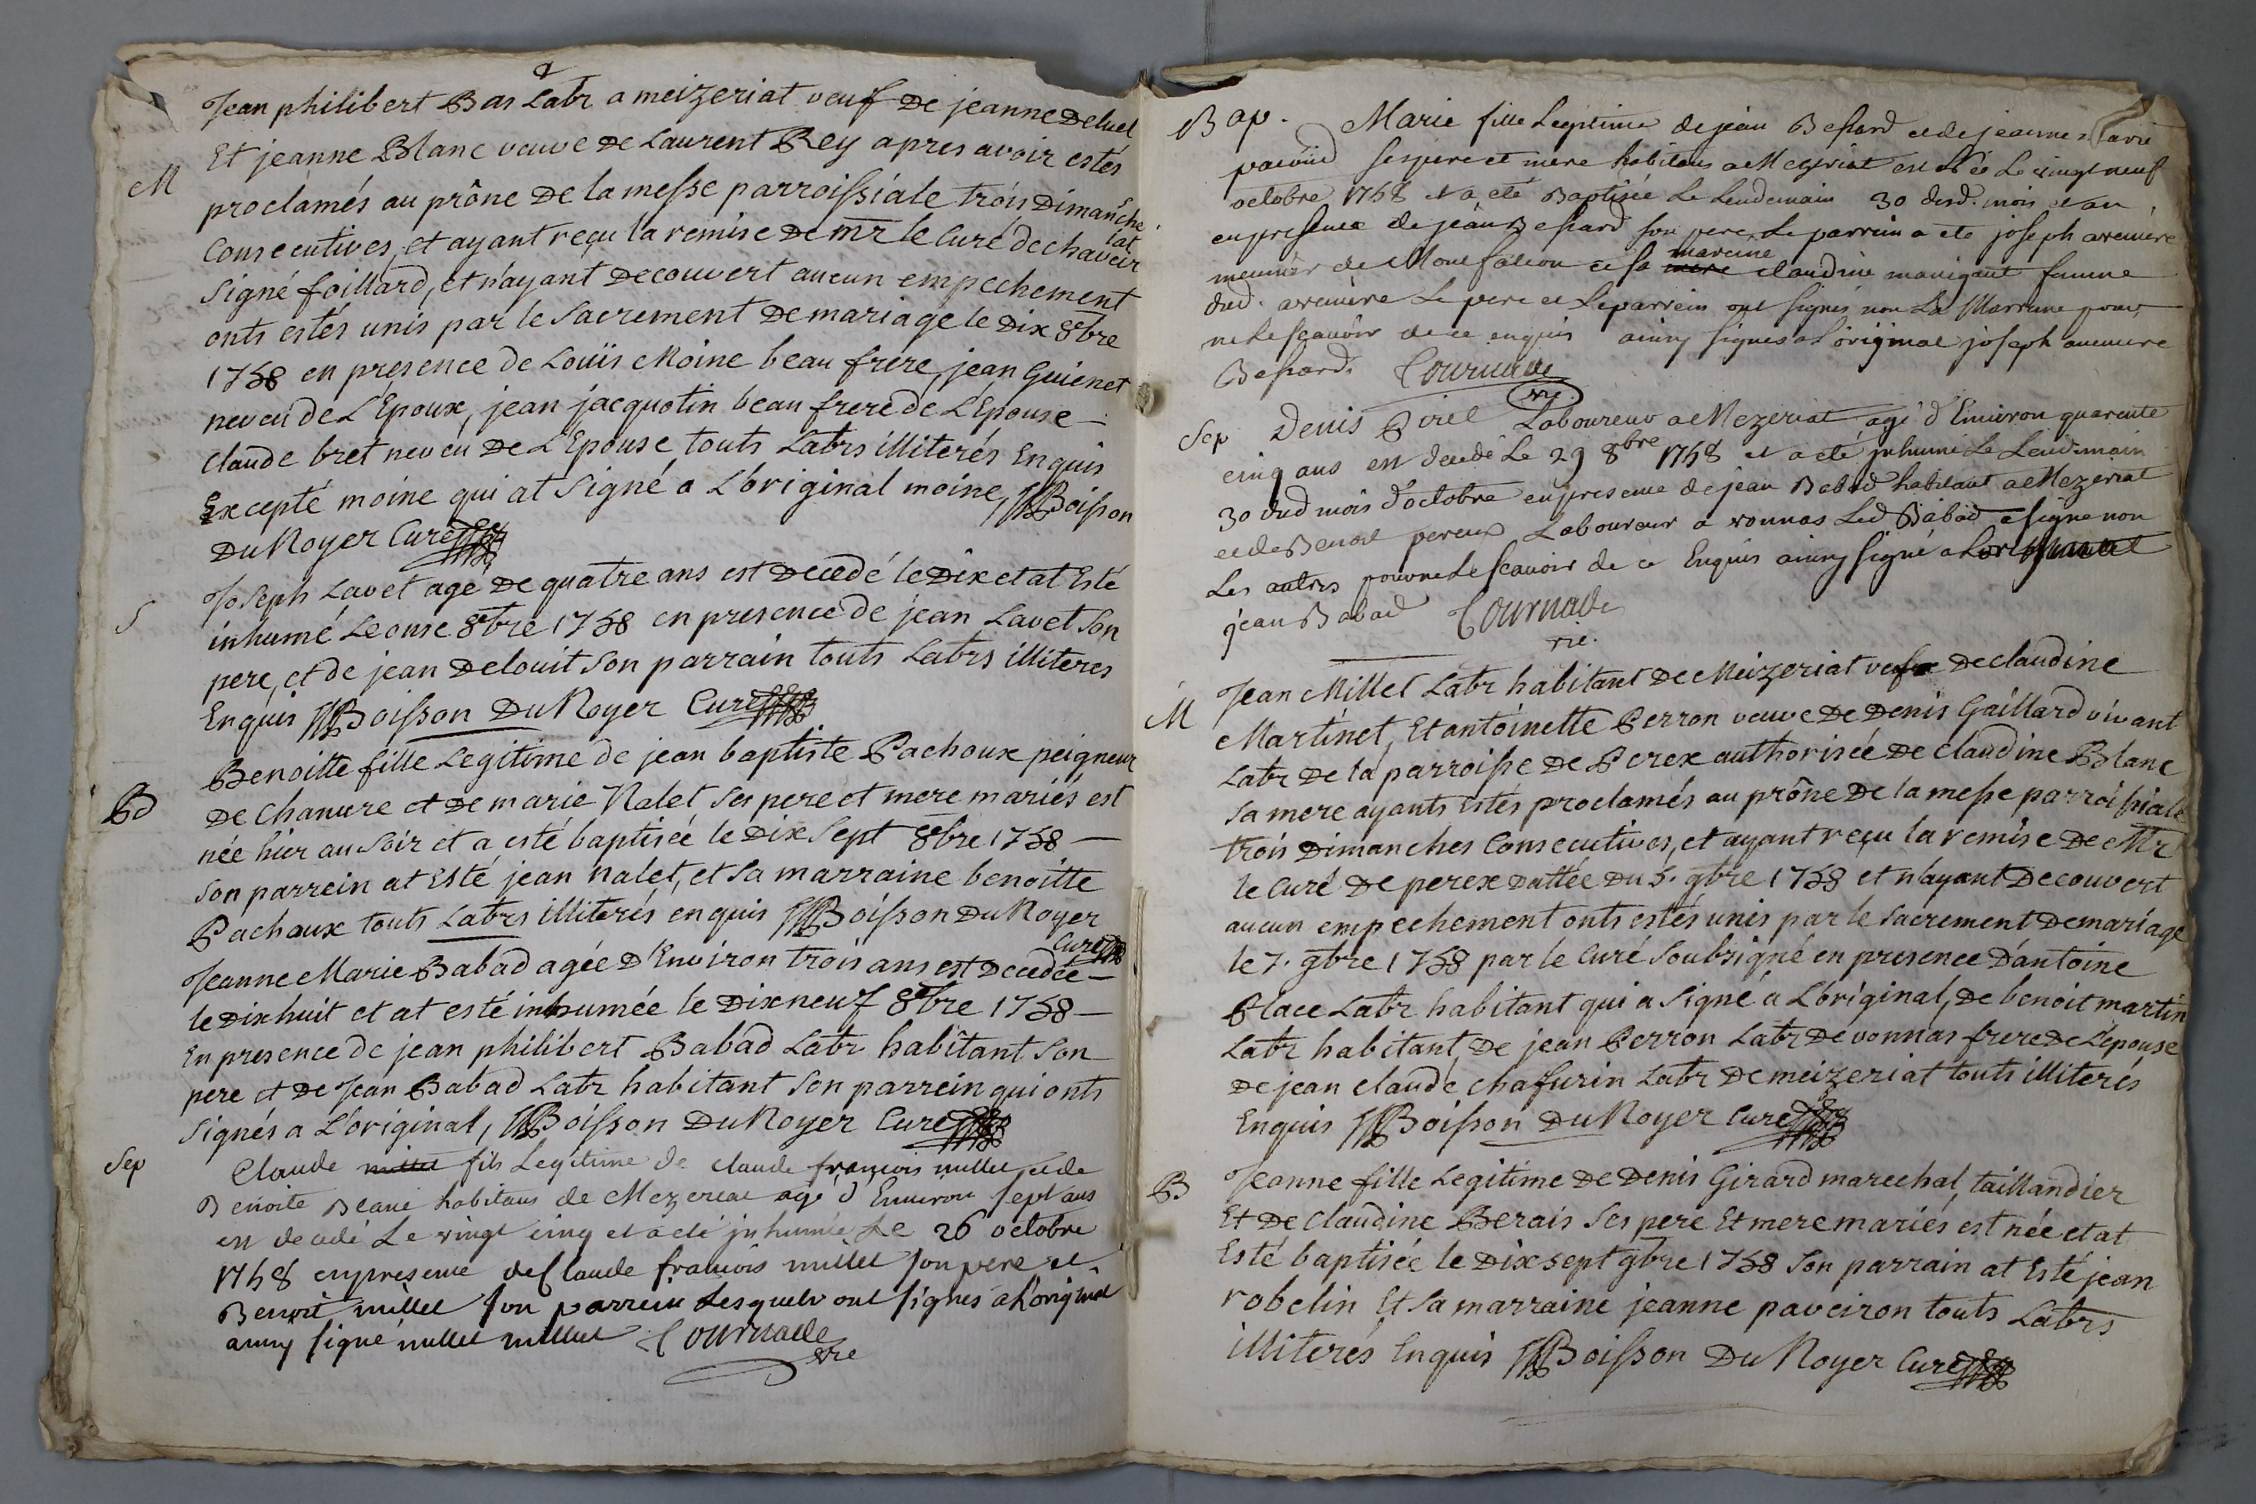 Jean philibert Bas Labr a meizeriat veuf De jeanne Deluel
M
Et jeanne Blanc veuve De Laurent Rey apres avoir estés
proclamés au prône De la messe parroissiale trois Dimanche
Consecutives, et ayant reçu la remise De mr le Curé de chaveir
Signé foillard, et n'ayant Decouvert aucun empechement
onts estés unis par le Sacrement De mariage le Dix 8bre
1758 en presence de Louïs Moine beau frere, jean Guienet
neveu de L'Epoux, jean jacquotin beau frere de L'Epouse
Claude bret neveu De L'Epouse touts Labrs illiterés Enquis
Excepté moine qui at Signé a L'original moine, Boisson
Du Noyer Curé
S
Joseph Lavet agé De quatre ans est Decedé le Dix et at Esté
inhumé Le onse 8bre 1758 en presence de jean Lavet Son
pere, et de jean Delouit Son parrain touts Labrs illiteres
Enquis Boisson Du Noyer Curé
Benoitte fille Legitime de jean baptiste Pachoux peigneur
B
De Chanure et De marie Nalet Ses pere et mere mariés est
née hier au Soir et a esté baptisée le Dix Sept 8bre 1758
Son parrein at Esté jean Nalet, et Sa marraine benoitte
Pachaux touts Labrs illiterés enquis Boisson Du Noyer
Curé
Jeanne Marie Babad agée D'Environ trois ans est Decedée
le Dixhuit et at esté inhumée le Dix neuf 8bre 1758
En presence de jean philibert Babad Labr habitant Son
pere et De Jean Babad Labr habitant Son parrein qui onts
Signés a L'original, Boisson Du Noyer Curé
Sep
Claude millet fils Legitime de claude françois millet et de
Benoite Blanc habitans de Mezeriat agé d'Environ Sept ans
est decedé Le vingt cinq et a eté inhumé Le 26 octobre
1758 en presence de Claude françois millet son pere et
Benoit millet son parrein Lesquels ont signés a L'original
ainsy signé millet millet Tournade
vre
Bap.
Marie fille Legitime de jean Bessard et de jeanne Marie
ses pere et mere habitans a Mezeriat est Née Le vingt neuf
octobre 1758 et a été Baptisée Le Lendemain 30 desd. mois et an
en presence de jean Bessard son pere Le parrein a ete joseph
mareine
meunier de Montfalcon et sa mere claudine femme
dud. Le pere et Le parrein ont signés non La Marrene pour
ne Le scauoir de ce enquis ainsy signés a L'original joseph
Bessard. Tournade
vre.
Sep
Denis Laboureur a Mezeriat agé d'Environ quarente
cinq ans est decedé Le 29 8bre 1758 et a eté inhumé Le Lendemain
30 dud mois d'octobre en presence de jean Babad habitant a Mezeriat
et de Benoit pereux Laboureur a vonnas Led Babad a signe non
Les autres pour ne Le scauoir de ce Enquis ainsy signé a L'original
jean Babad Tournade
vre.
Jean Millet Labr habitant De Meizeriat veuf De claudine
M
Martinet, Et antoinette Perron veuve De Denis Gaillard vivant
Labr De la parroisse De Perex authorisée De Claudine Blanc
Sa mere ayants estés proclamés au prône De la messe parroissiale
trois Dimanches Consecutives, et ayant reçu la remise De Mr
le Curé De perex Dattée Du 5. 9bre 1758 et n'ayant Decouvert
aucun empechement onts estés unis par le Sacrement De mariage
le 7. 9bre 1758 par le Curé Soubsigné en presence D'antoine
Place Labr habitant qui a Signé a L'original, De benoit martin
Labr habitant, De jean Perron Labr De vonnas frere de L'épouse
De jean Claude Chafurin Labr De meizeriat touts illiterés
Enquis Boisson Du Noyer Curé
B
Jeanne fille Legitime De Denis Girard marechal, taillandier
Et De Claudine Berais Ses pere Et mere mariés est née et at
Esté baptisée le Dix sept 9bre 1758 Son parrain at Esté jean
robelin Et Sa marraine jeanne paveiron touts Labrs
illiterés Enquis Boisson Du Noyer Curé